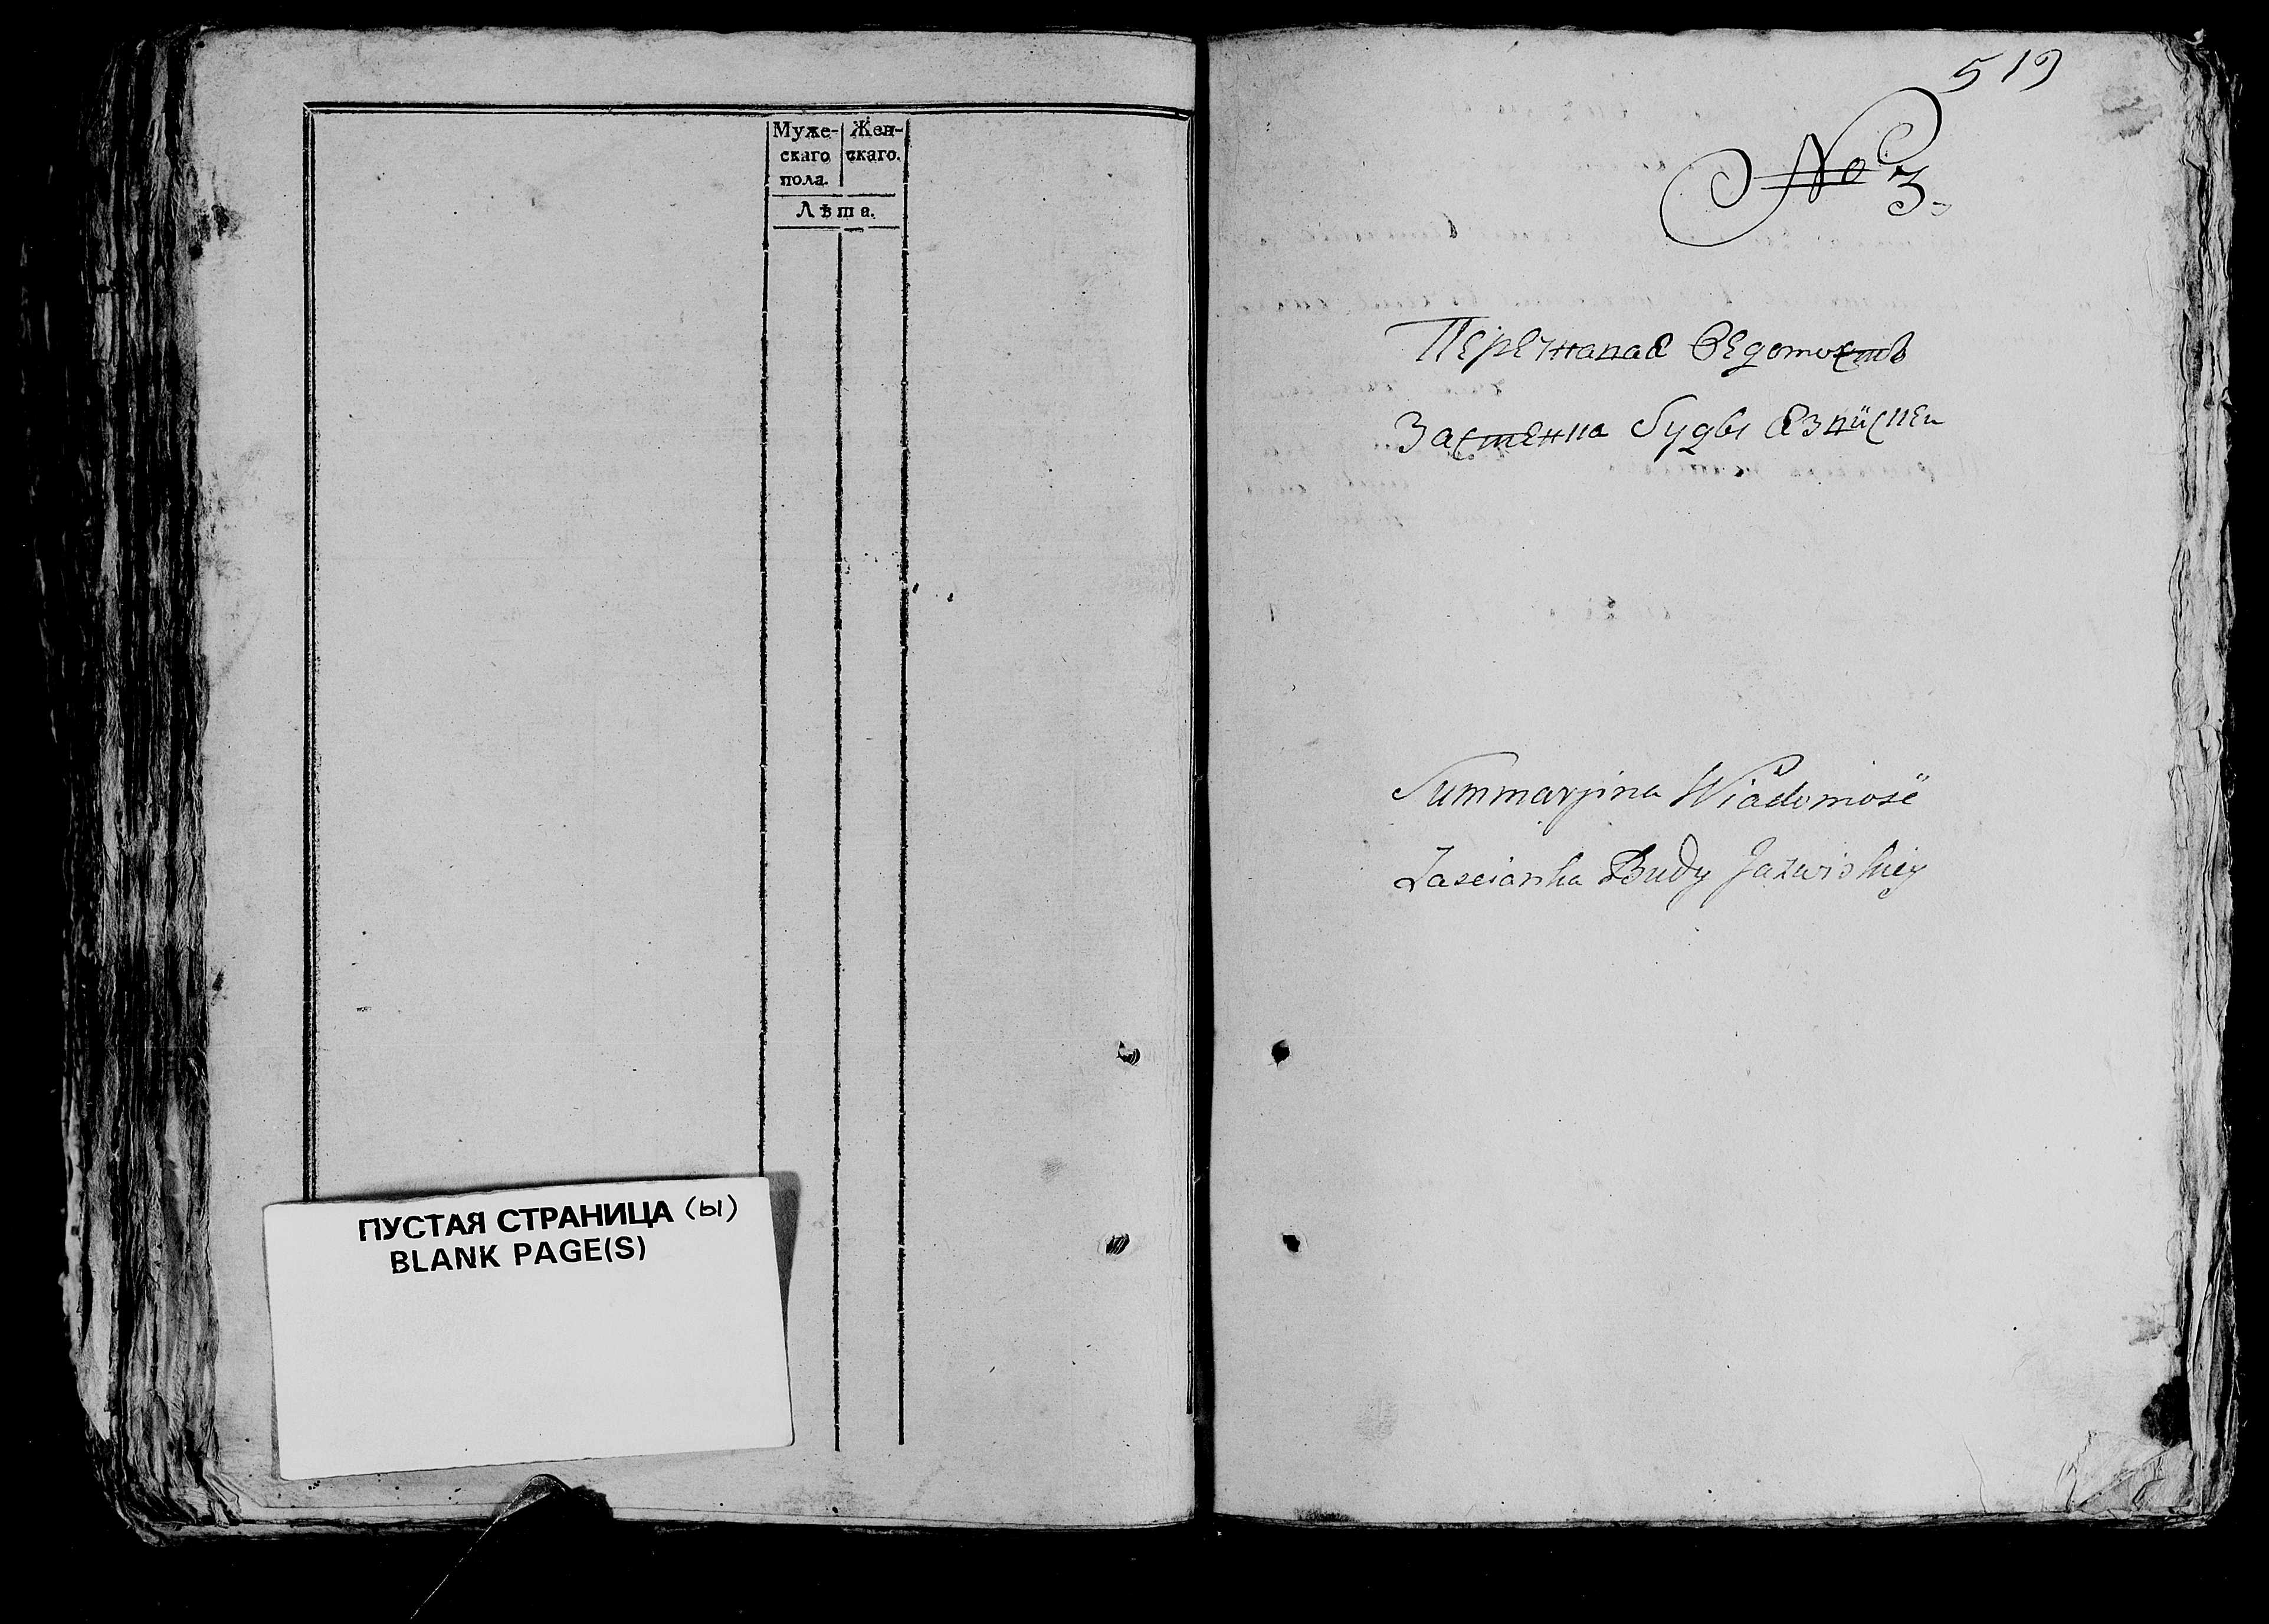 Муже-
скаго
пола.
Жен-
скаго.
Лѣта.
ПУСТАЯ СТРАНИЦА (Ы)
BLANK PAGE(S)
519
No 3.
Перечнаная Ведомость
Застенка Буды Язвиской
Summaryina Wiadomość
Zascianka Budy Jazwiskiey